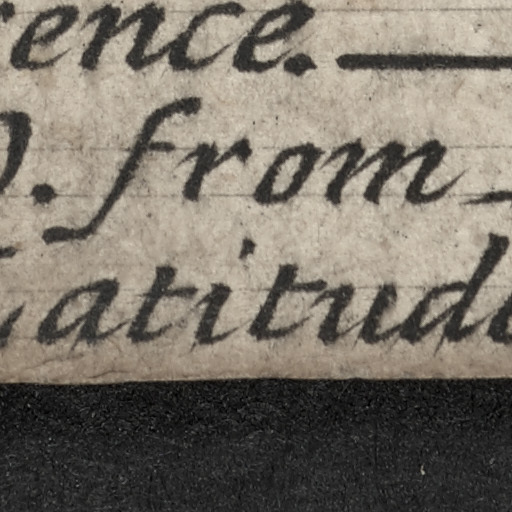 rence. —
). from —
Latitude